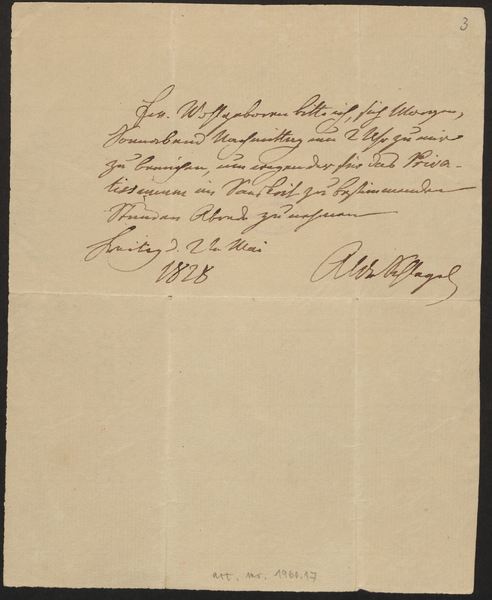 3
Ew. Wohlgeboren bitte ich, sich Morgen,
Sonnabend Nachmittag um 2 Uhr zu mir
zu bemühen, um wegen der für das Priva-
tissimum im Sanskrit zu bestimmenden
Stunden Abrede zu nehmen
Freitag d. 2ten Mai
1828
AWvSchlegel
acc. nr. 1960.17